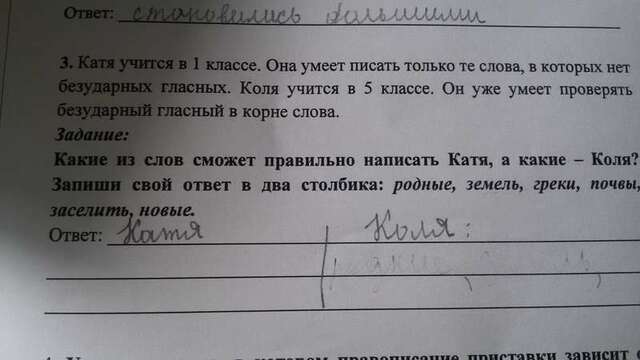 Ответ: становились большими
3. Катя учится в 1 классе. Она умеет писать только те слова, в которых нет
безударных гласных. Коля учится в 5 классе. Он уже умеет проверять
безударный гласный в корне слова.
Задание:
Какие из слов сможет правильно написать Катя, а какие – Коля?
Запиши свой ответ в два столбика: родные, земель, греки, почвы,
заселить, новые.
Ответ: Катя Коля:
правописание приставки зависит